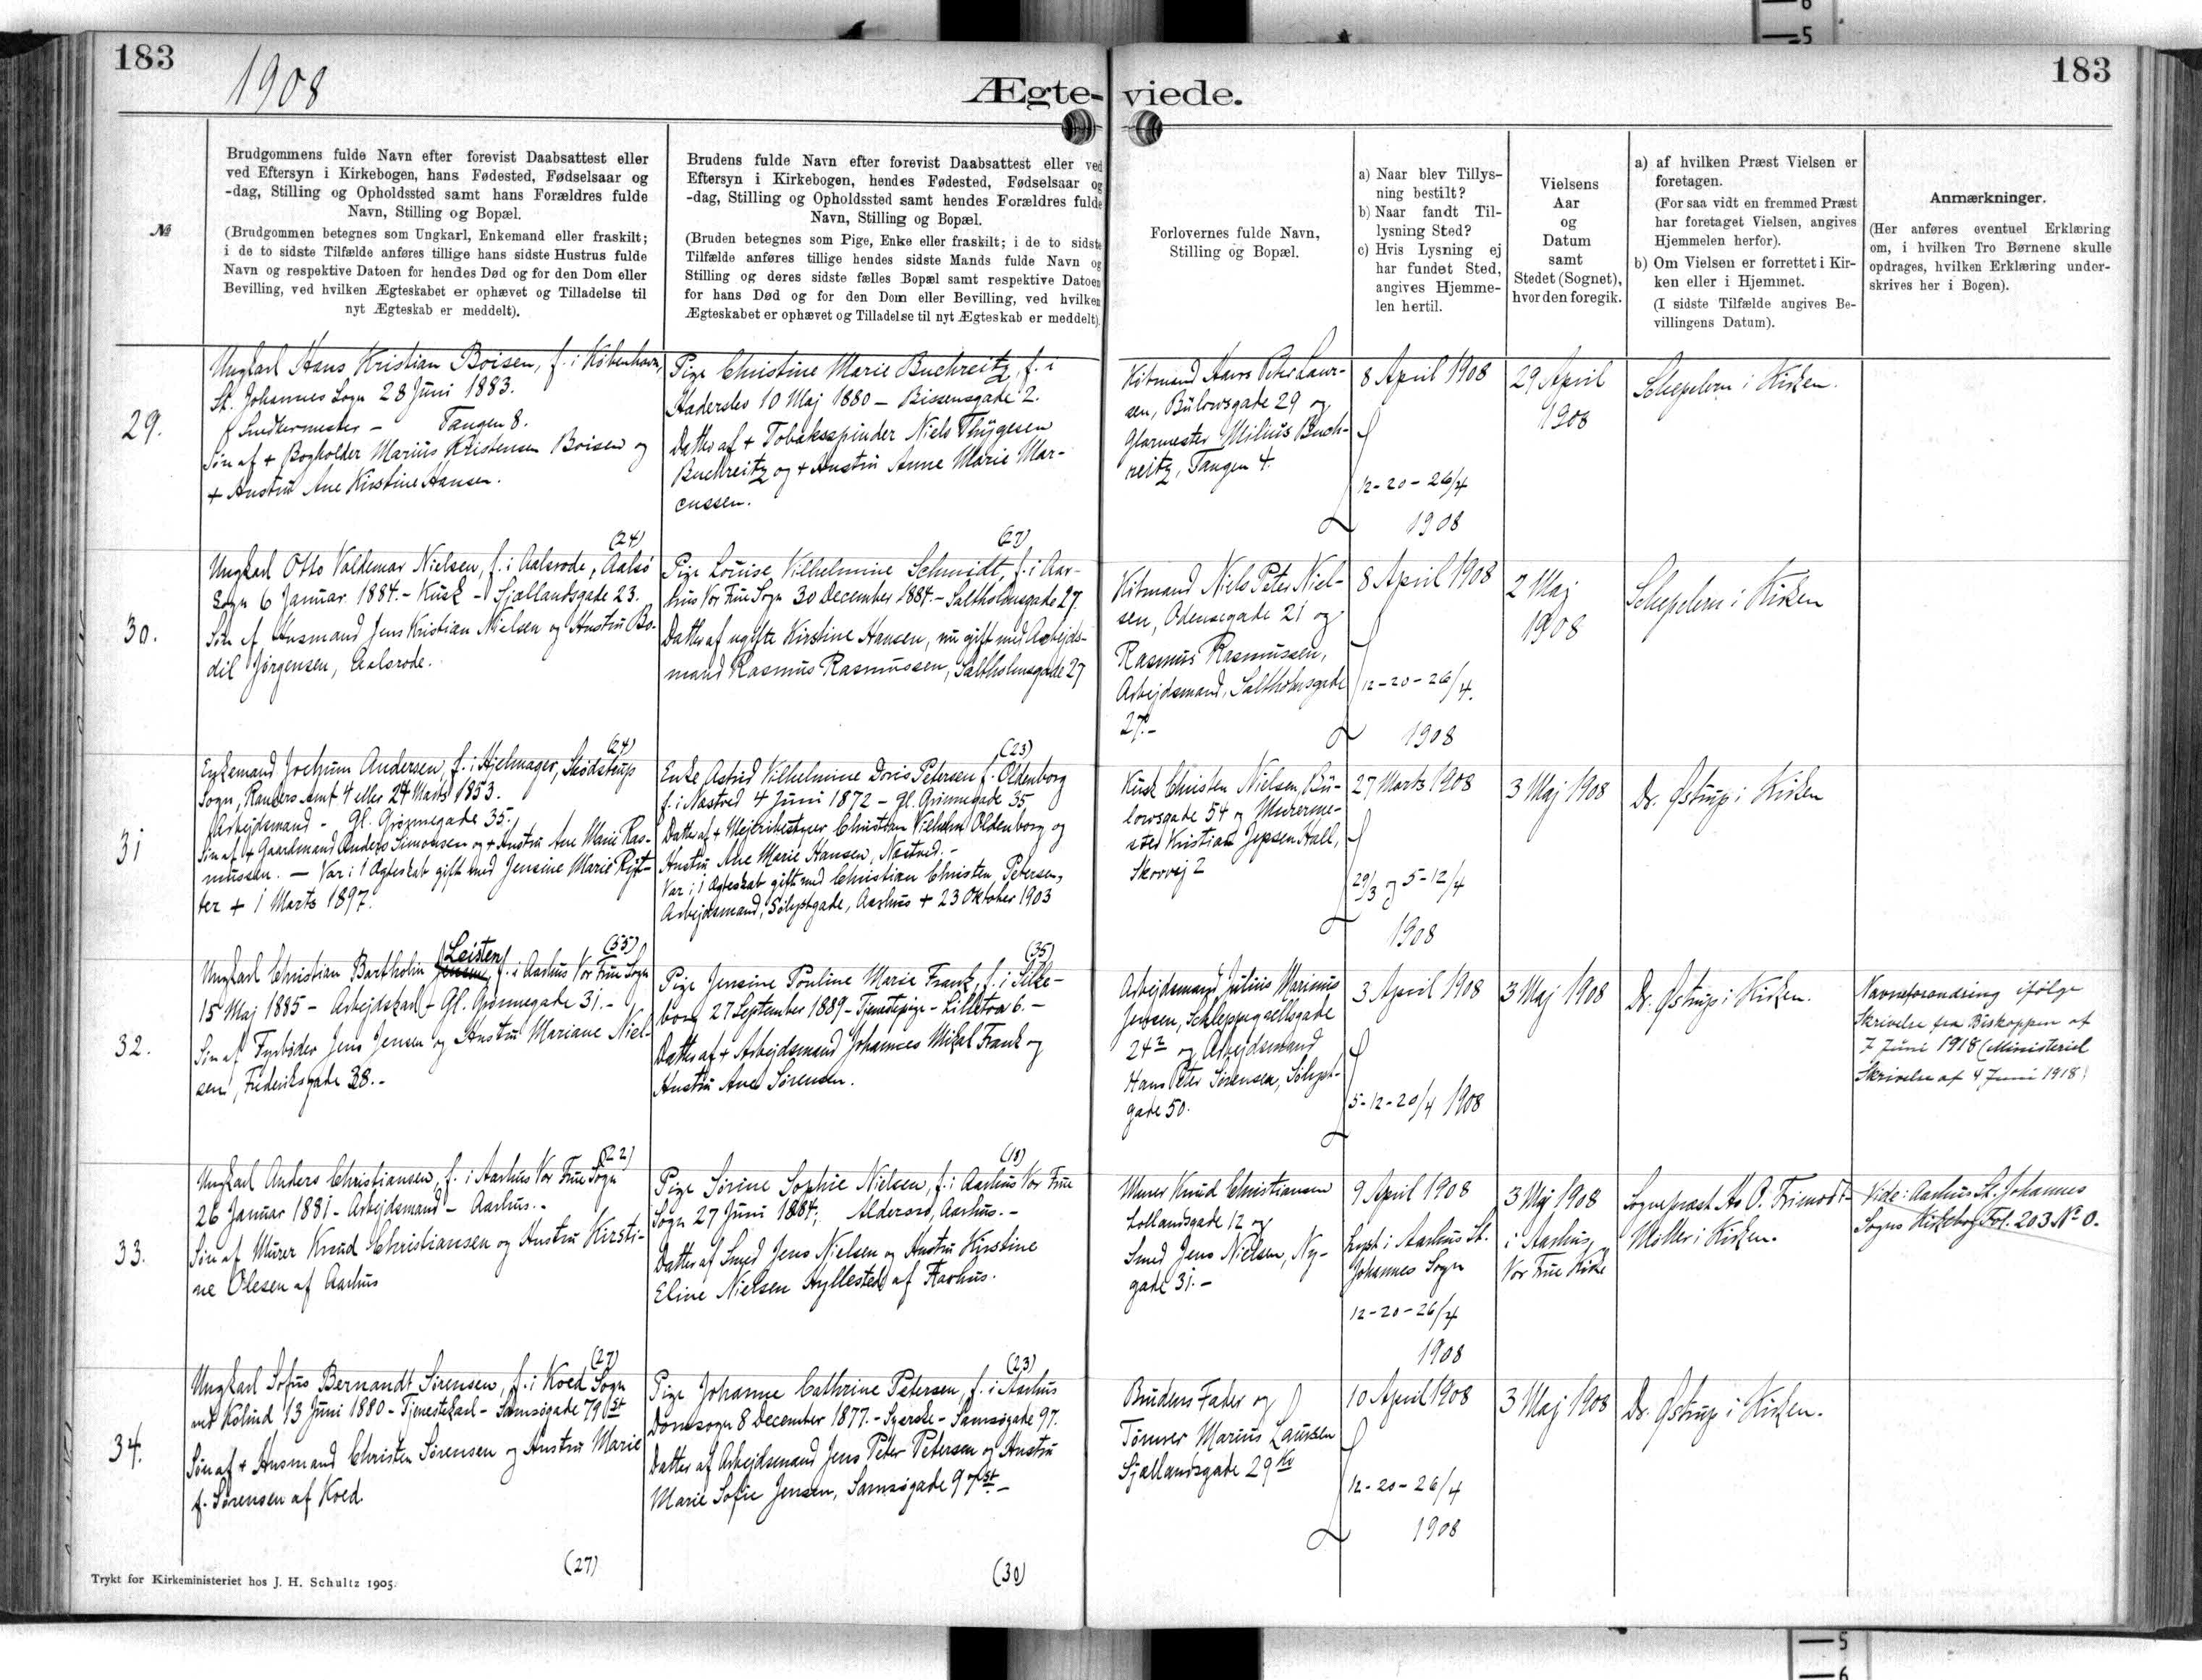 183
1908
Ægte-
viede.
183
№
Brudgommens fulde Navn efter forevist Daabsattest eller
ved Eftersyn i Kirkebogen, hans Fødested, Fødselsaar og
-dag, Stilling og Opholdssted samt hans Forældres fulde
Navn, Stilling og Bopæl.
(Brudgommen betegnes som Ungkarl, Enkemand eller fraskilt;
i de to sidste Tilfælde anføres tillige hans sidste Hustrus fulde
Navn og respektive Datoen for hendes Død og for den Dom eller
Bevilling, ved hvilken Ægteskabet er ophævet og Tilladelse til
nyt Ægteskab er meddelt).
Brudens fulde Navn efter forevist Daabsattest eller ved
Eftersyn i Kirkebogen, hendes Fødested, Fødselsaar og
-dag, Stilling og Opholdssted samt hendes Forældres fulde
Navn, Stilling og Bopæl.
(Bruden betegnes som Pige, Enke eller fraskilt; i de to sidste
Tilfælde anføres tillige hendes sidste Mands fulde Navn og
Stilling og deres sidste fælles Bopæl samt respektive Datoen
for hans Død og for den Dom eller Bevilling, ved hvilken
Ægteskabet er ophævet og Tilladelse til nyt Ægteskab er meddelt).
Forlovernes fulde Navn,
Stilling og Bopæl.
a) Naar blev Tillys-
ning bestilt?
b) Naar fandt Til-
lysning Sted?
c) Hvis Lysning ej
har fundet Sted,
angives Hjemme-
len hertil.
Vielsens
Aar
og
Datum
samt
Stedet (Sognet),
hvor den foregik.
a) af hvilken Præst Vielsen er
foretagen.
(For saa vidt en fremmed Præst
har foretaget Vielsen, angives
Hjemmelen herfor).
b) Om Vielsen er forrettet i Kir-
ken eller i Hjemmet.
(I sidste Tilfælde angives Be-
villingens Datum).
Anmærkninger.
(Her anføres eventuel Erklæring
om, i hvilken Tro Børnene skulle
opdrages, hvilken Erklæring under-
skrives her i Bogen).
29.
Ungkarl Hans Kristian Boisen, f. i København,
St. Johannes Sogn 28 Juni 1883.
Snedkermester - Tangen 8.
Søn af + Bogholder Marius Kristensen Boisen og
+ Hustru Ane Kirstine Hansen.
(24)
Pige Christine Marie Buchreitz, f. i
Haderslev 10 Maj 1880 - Bissensgade 2.
Datter af + Tobaksspinder Niels Thygesen
Buchreitz og + Hustru Anne Marie Mar-
cussen.
(27)
Kitmand Hans Peter Laur-
sen, Bülowsgade 29 og
Glarmester Milius Buch-
reitz, Tangen 4.
8 April 1908
12-20-26/4
1908
29 April
1908
Schepelern i Kirken.
30.
Ungkarl Otto Valdemar Nielsen, f. i Aalsrode, Aalsø
Sogn 6 Januar 1884. - Kusk - Sjællandsgade 23.
Søn af Husmand Jens Kristian Nielsen og Hustru Bo-
dil Jørgensen, Aalsrode.
(24)
Pige Louise Vilhelmine Schmidt, f. i Aar-
hus Vor Frue Sogn 30 December 1884. - Saltholmsgade 27.
Datter af ugifte Kirstine Hansen, nu gift med Arbejds-
mand Rasmus Rasmussen, Saltholmsgade 27
(23)
Kitmand Niels Peter Niel-
sen, Odensegade 21 og
Rasmus Rasmussen,
Arbejdsmand, Saltholmsgade
27.-
8 April 1908
12-20-26/4.
1908
2 Maj
1908
Schepelern i Kirken
31
Enkemand Jochum Andersen, f. i Hjelmager, Skødstrup
Sogn, Randers Amt 4 eller 24 Marts 1853.
Arbejdsmand - Gl. Grønnegade 35.
Søn af + Gaardmand Anders Simonsen og + Hustru Ane Marie Ras-
mussen. - Var i 1 Ægteskab gift med Jensine Marie Ryt-
ter + 1 Marts 1897.
(55)
Enke Astrid Vilhelmine Doris Petersen f. Oldenborg
f. i Næstved 4 Juni 1872 - Gl. Grønnegade 35
Datter af + Mejeribestyrer Christian Vilhelm Oldenborg og
Hustru Ane Marie Hansen, Næstved. -
Var i 1 Ægteskab gift med Christian Christen Petersen,
Arbejdsmand, Sølystgade, Aarhus + 23 Oktober 1903
(35)
Kusk Christen Nielsen, Bü-
lowsgade 54 og Murerme-
ster Kristian Jepsen Hall,
Skovvej 2
27 Marts 1908
29/3 og 5-12/4
1908
3 Maj 1908
Dr. Østrup i Kirken
32.
Leisten
Ungkarl Christian Bartholin Jensen, f. i Aarhus Vor Frue Sogn
15 Maj 1885 - Arbejdskarl - Gl. Grønnegade 31. -
Søn af Fyrbøder Jens Jensen og Hustru Mariane Niel-
sen, Frederiksgade 38. -
(22)
Pige Jensine Pouline Marie Frank, f. i Silke-
borg 27 September 1889 - Tjenestepige - Lilletorv 6. -
Datter af + Arbejdsmand Johannes Mikal Frank og
Hustru Ane Sørensen.
(18)
Arbejdsmand Julius Marinus
Jensen, Schleppegrellsgade
24² og Arbejdsmand
Hans Peter Sørensen, Sølyst-
gade 50.
3 April 1908
5-12-20/4 1908
3 Maj 1908
Dr. Østrup i Kirken.
Navneforandring ifølge
Skrivelse fra Biskoppen af
7 Juni 1918 (Ministeriel
Skrivelse af 4 Juni 1918)
33.
Ungkarl Anders Christiansen, f. i Aarhus Vor Frue Sogn
26 Januar 1881 - Arbejdsmand - Aarhus. -
Søn af Murer Knud Christiansen og Hustru Kirsti-
ne Olesen af Aarhus
(27)
Pige Sørine Sophie Nielsen, f. i Aarhus Vor Frue
Sogn 27 Juni 1884; Aldersro, Aarhus. -
Datter af Smed Jens Nielsen og Hustru Kirstine
Eline Nielsen Hyllested af Aarhus.
(23)
Murer Knud Christiansen
Lollandsgade 12 og
Smed Jens Nielsen, Ny-
gade 31. -
9 April 1908
lyst i Aarhus St.
Johannes Sogn
12-20-26/4
1908
3 Maj 1908
i Aarhus
Vor Frue Kirke
Sognepræst O. Frimodt-
Møller i Kirken.
Vide: Aarhus St. Johannes
Sogns Kirkebog Fol. 203 No 0.
34.
Ungkarl Sofus Bernandt Sørensen, f. i Koed Sogn
ved Kolind 13 Juni 1880 - Tjenestekarl - Samsøgade 79 st
Søn af + Husmand Christen Sørensen og Hustru Marie
f. Sørensen af Koed.
(27)
Pige Johanne Cathrine Petersen, f. i Aarhus
Domsogn 8 December 1877. - Syerske - Samsøgade 97.
Datter af Arbejdsmand Jens Peter Petersen og Hustru
Marie Sofie Jensen, Samsøgade 97 st. -
(30)
Brudens Fader og
Tømrer Marius Laursen
Sjællandsgade 29 Kv
10 April 1908
12-20-26/4
1908
3 Maj 1908
Dr. Østrup i Kirken.
Trykt for Kirkeministeriet hos J. H. Schultz 1905.